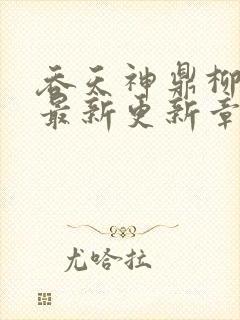 吞天神鼎柳
最新更新章
尤哈拉